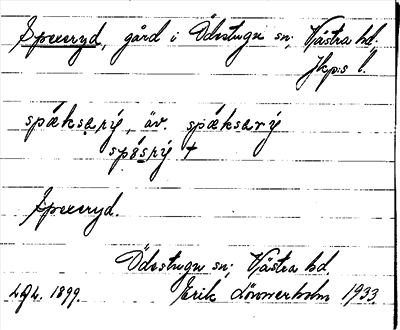 Spexeryd, gård i Ödestugu sn; Västra hd.
Jkp:s l.
spæksarý, äv. spæksarý
spøsrý +
Spexeryd.
Ödestugu sn; Västra hd.
1899. Erik Lönnerholm 1933.